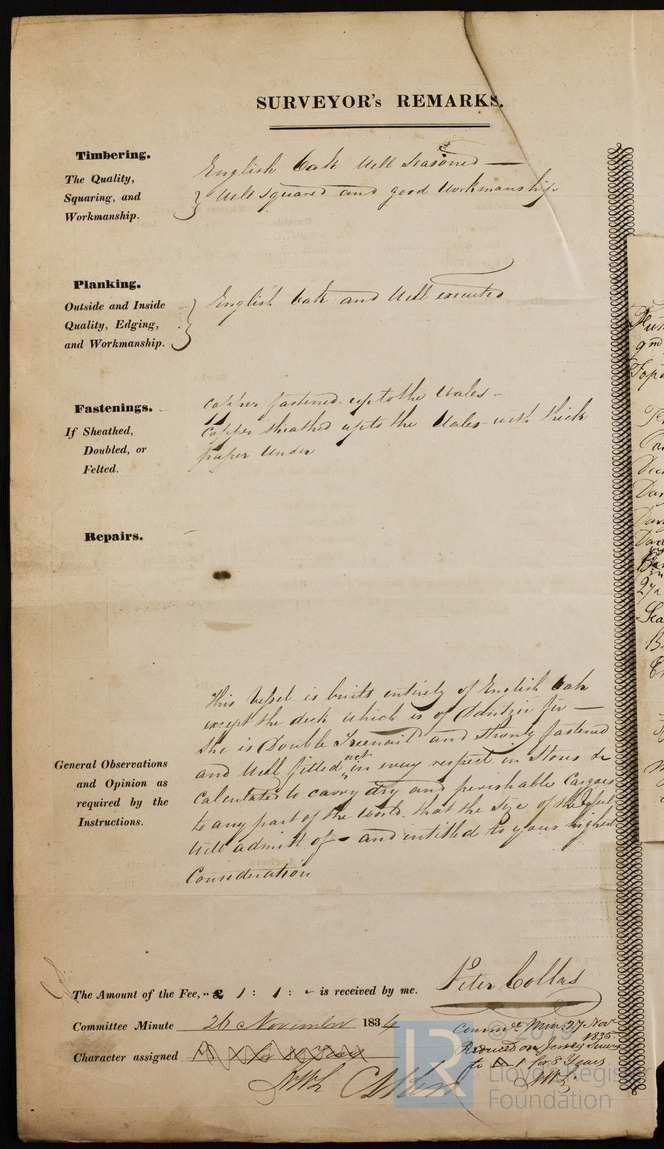 SURVEYOR's REMARKS.
Timbering.
The Quality,
Squaring, and
Workmanship.
English Oak Well Seasoned —
Well squared and good Workmanship
Planking.
Outside and Inside
Quality, Edging,
and Workmanship.
English Oak and Well executed
Fastenings.
If Sheathed,
Doubled, or
Felted.
Copper fastened up to the Wales -
Copper sheathed up to the Wales with thick
paper Under
Repairs.
General Observations
and Opinion as
required by the
Instructions.
This Vessel is built entirely of English Oak
except the deck which is of Dantzic fir —
She is Double Treenail and Strongly fastened
and Well fitted out in every respect in Stores &c
Calculated to carry dry and perishable Cargoes
to any part of the World, that the Size of the
Will admitt of - and intitled to your highest
Consideration
The Amount of the Fee, £ 1 : 1 : - is received by me.
Peter Collas
Committee Minute 26 November 1834
Character assigned
Comm.ee Min. 27 Nov.r
1835
Reduced on Jersey Survey
to 1 for 8 Years
LR
© 2019
Lloyd's Register
Foundation